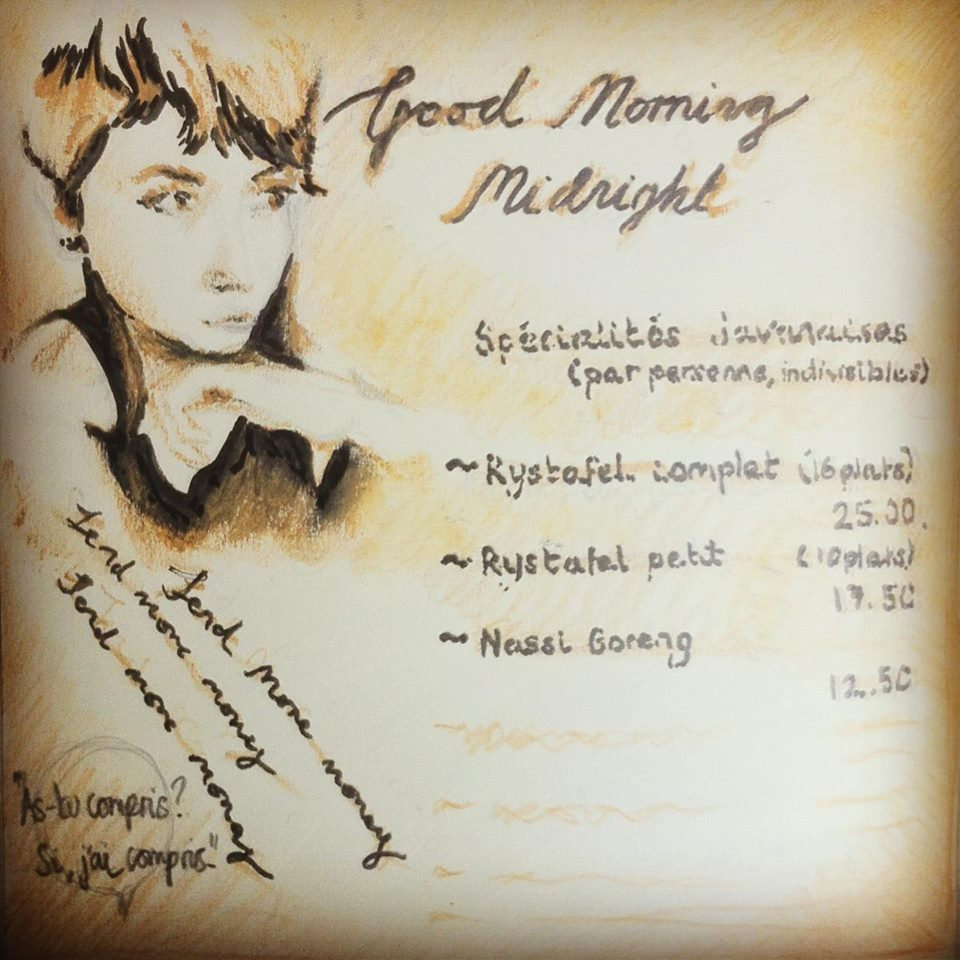 Good Morning
Midnight
Spécialités Javanaises
(par personne, indivisibles)
~ Rystafel complet (16 plats)
25.00.
~ Rystafel petit (10 plats)
17.50
~ Nassi Goreng
12.50
Send more money
Send more money
Send more money
"As-tu compris?
Si, j'ai compris"